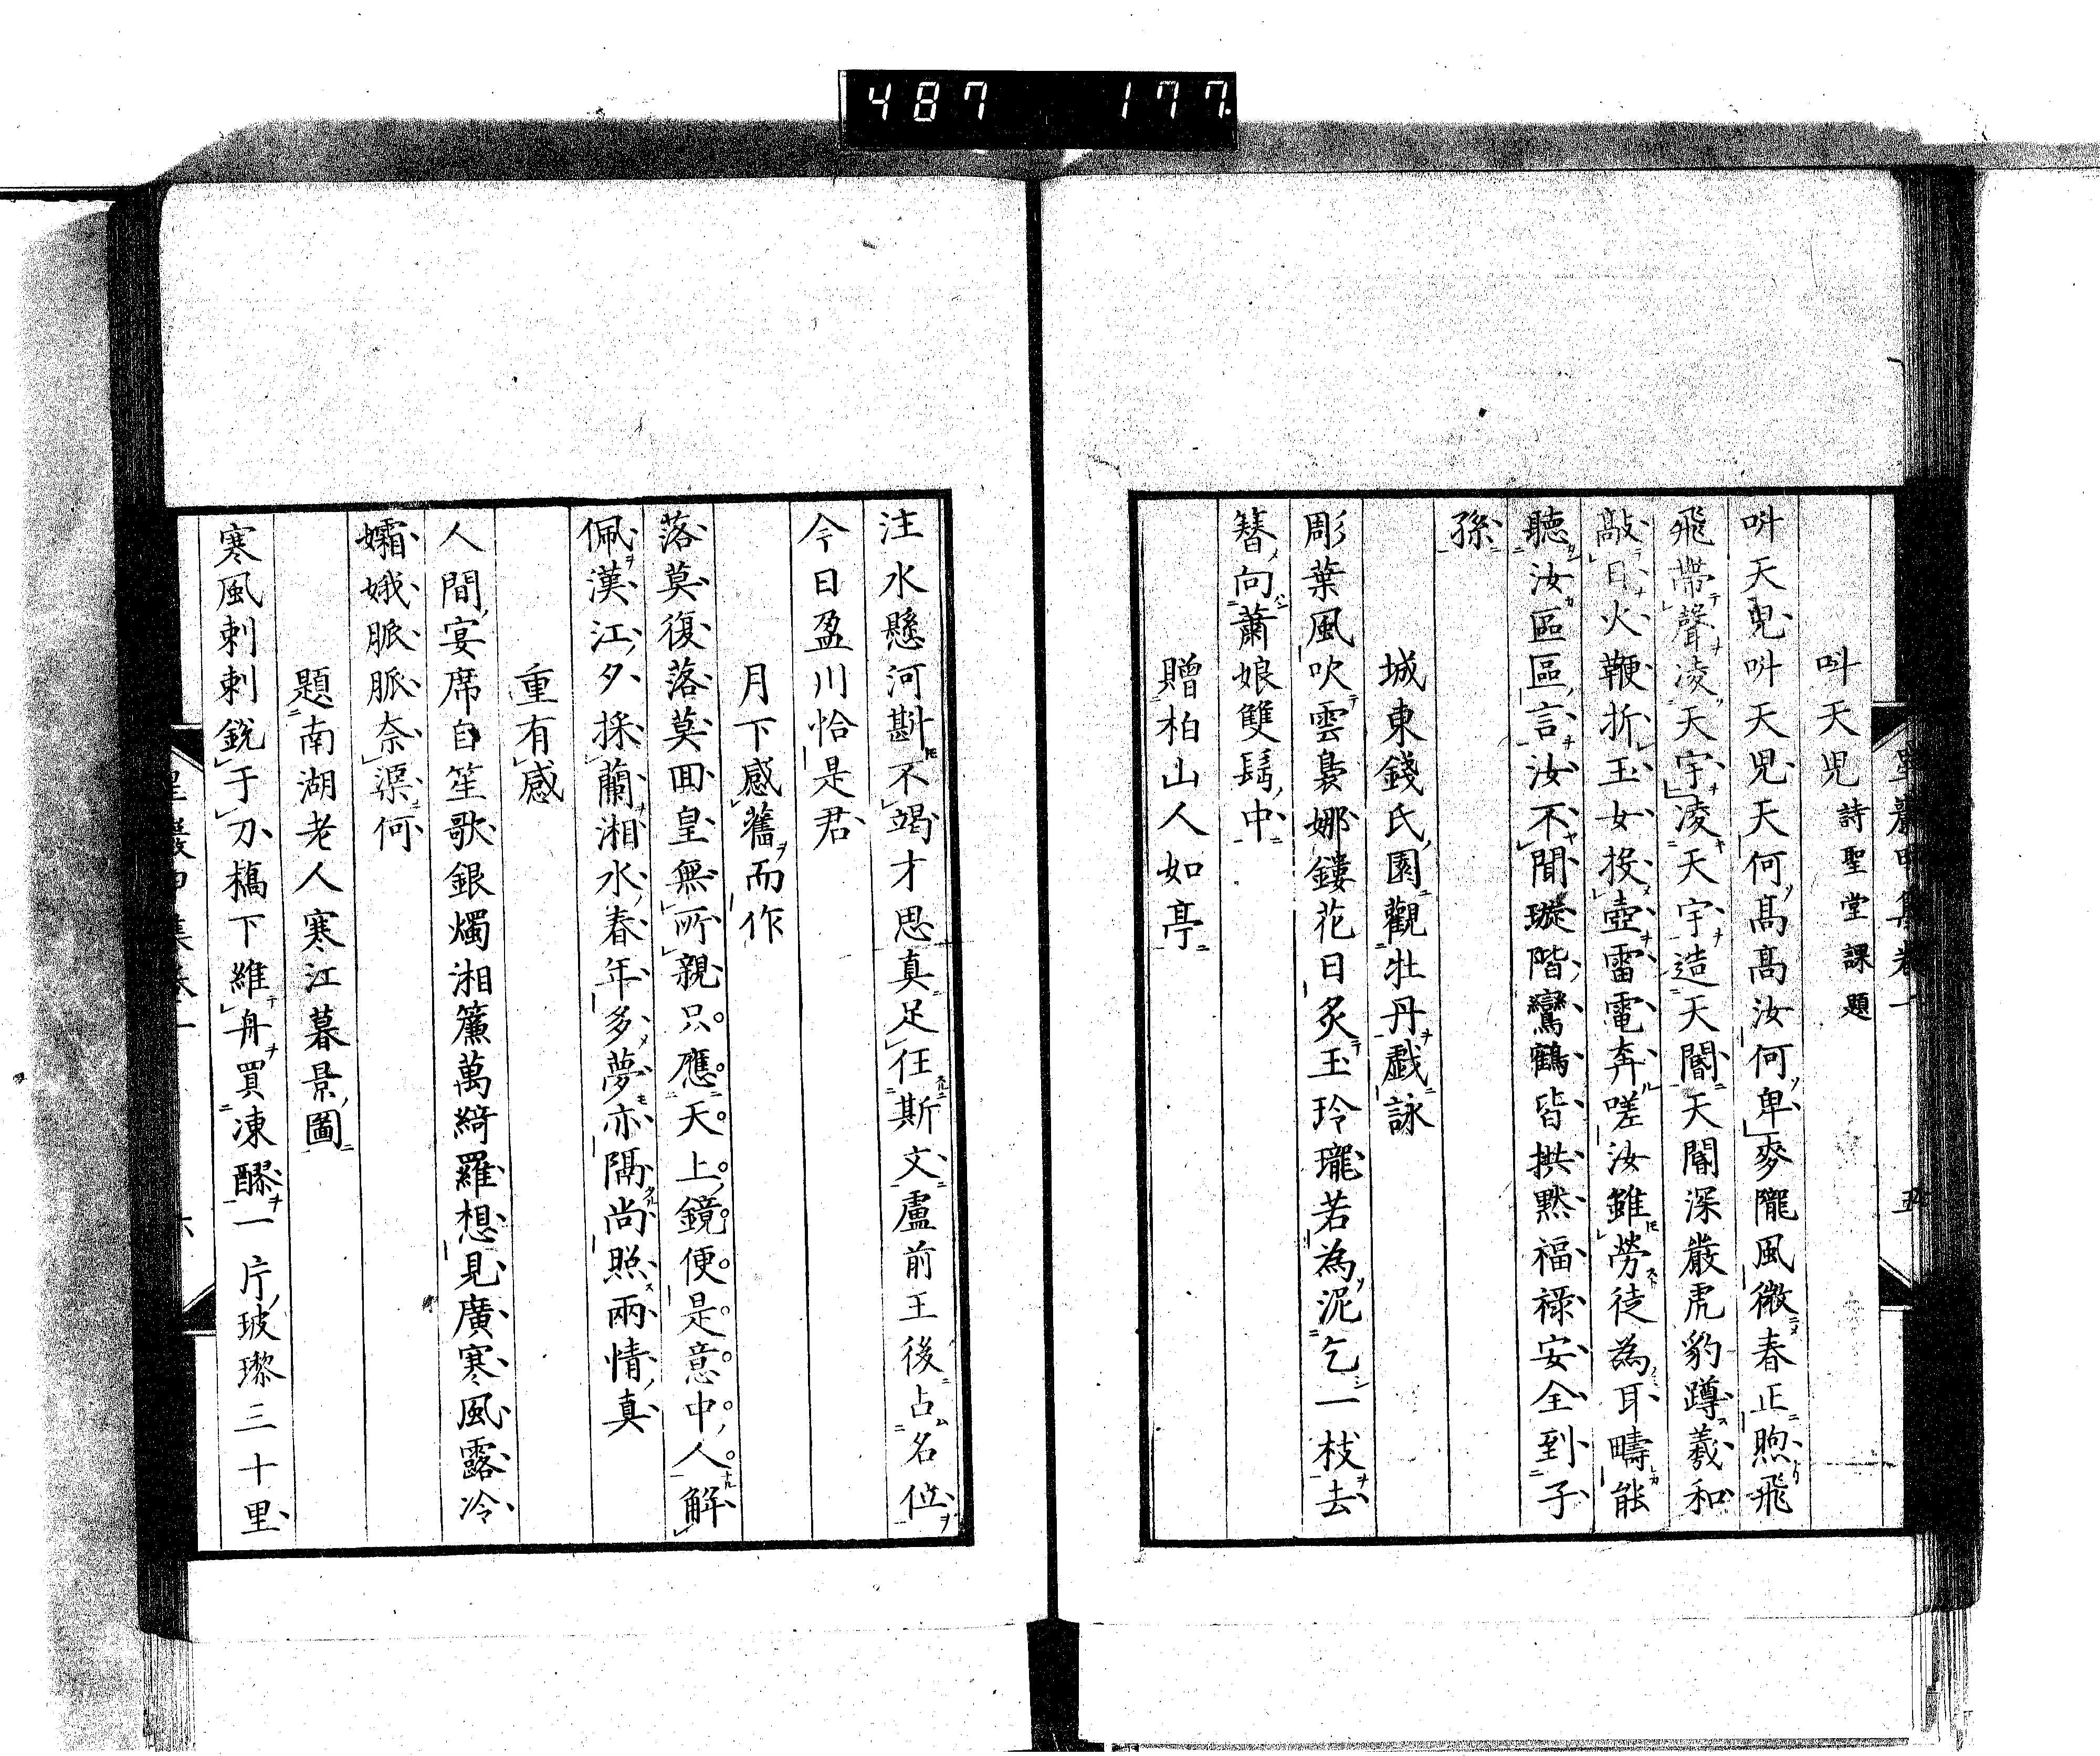 487 177
叫天兒 詩聖堂課題
叫天兒叫天兒天何高高汝何卑麥隴風微春正煦飛
飛帶聲凌天宇凌天宇造天閽天閽深嚴虎豹蹲羲和
敲日火鞭折玉女投壺雷電奔嗟汝雖勞徒為耳疇能
聽汝區區言汝不聞璇階鸞鶴皆拱默福祿安全到子
孫
城東錢氏園觀牡丹戲詠
彫葉風吹雲裊娜鏤花日炙玉玲瓏若為泥乞一枝去
簪向蕭娘雙髻中
贈柏山人如亭
注水懸河斟不竭才思真足任斯文盧前王後占名位
今日盈川恰是君
月下感舊而作
落莫復落莫囬皇無所親只應天上鏡便是意中人解
佩漢江夕採蘭湘水春年多夢亦隔尚照兩情真
重有感
人間宴席自笙歌銀燭湘簾萬綺羅想見廣寒風露冷
孀娥脈脈奈渠何
題南湖老人寒江暮景圖
寒風剌剌銳于刀橋下維舟買凍醪一片玻瓈三十里